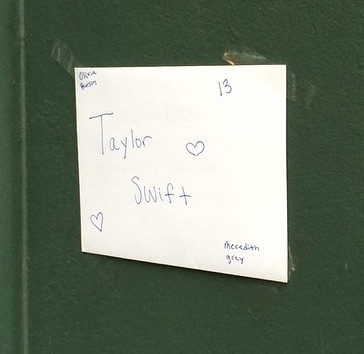 Olivia
Benson
13
Taylor
Swift
Meredith
grey